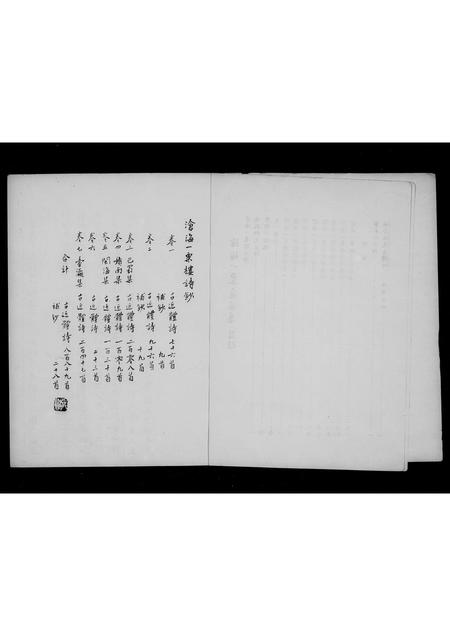 滄海一粟樓詩鈔
卷一 古近體詩 七十六首
補鈔 九首
卷二 古近體詩 九十六首
補鈔 十九首
卷三 巴蜀集 古近體詩 二百零八首
卷四 嶺南集 古近體詩 一百零九首
卷五 閩海集 古近體詩 一百三十首
卷六 古近體詩 二十三首
卷七 臺瀛集 古近體詩 二百四十七首
合計 古近體詩 八百八十九首
補鈔 二十八首